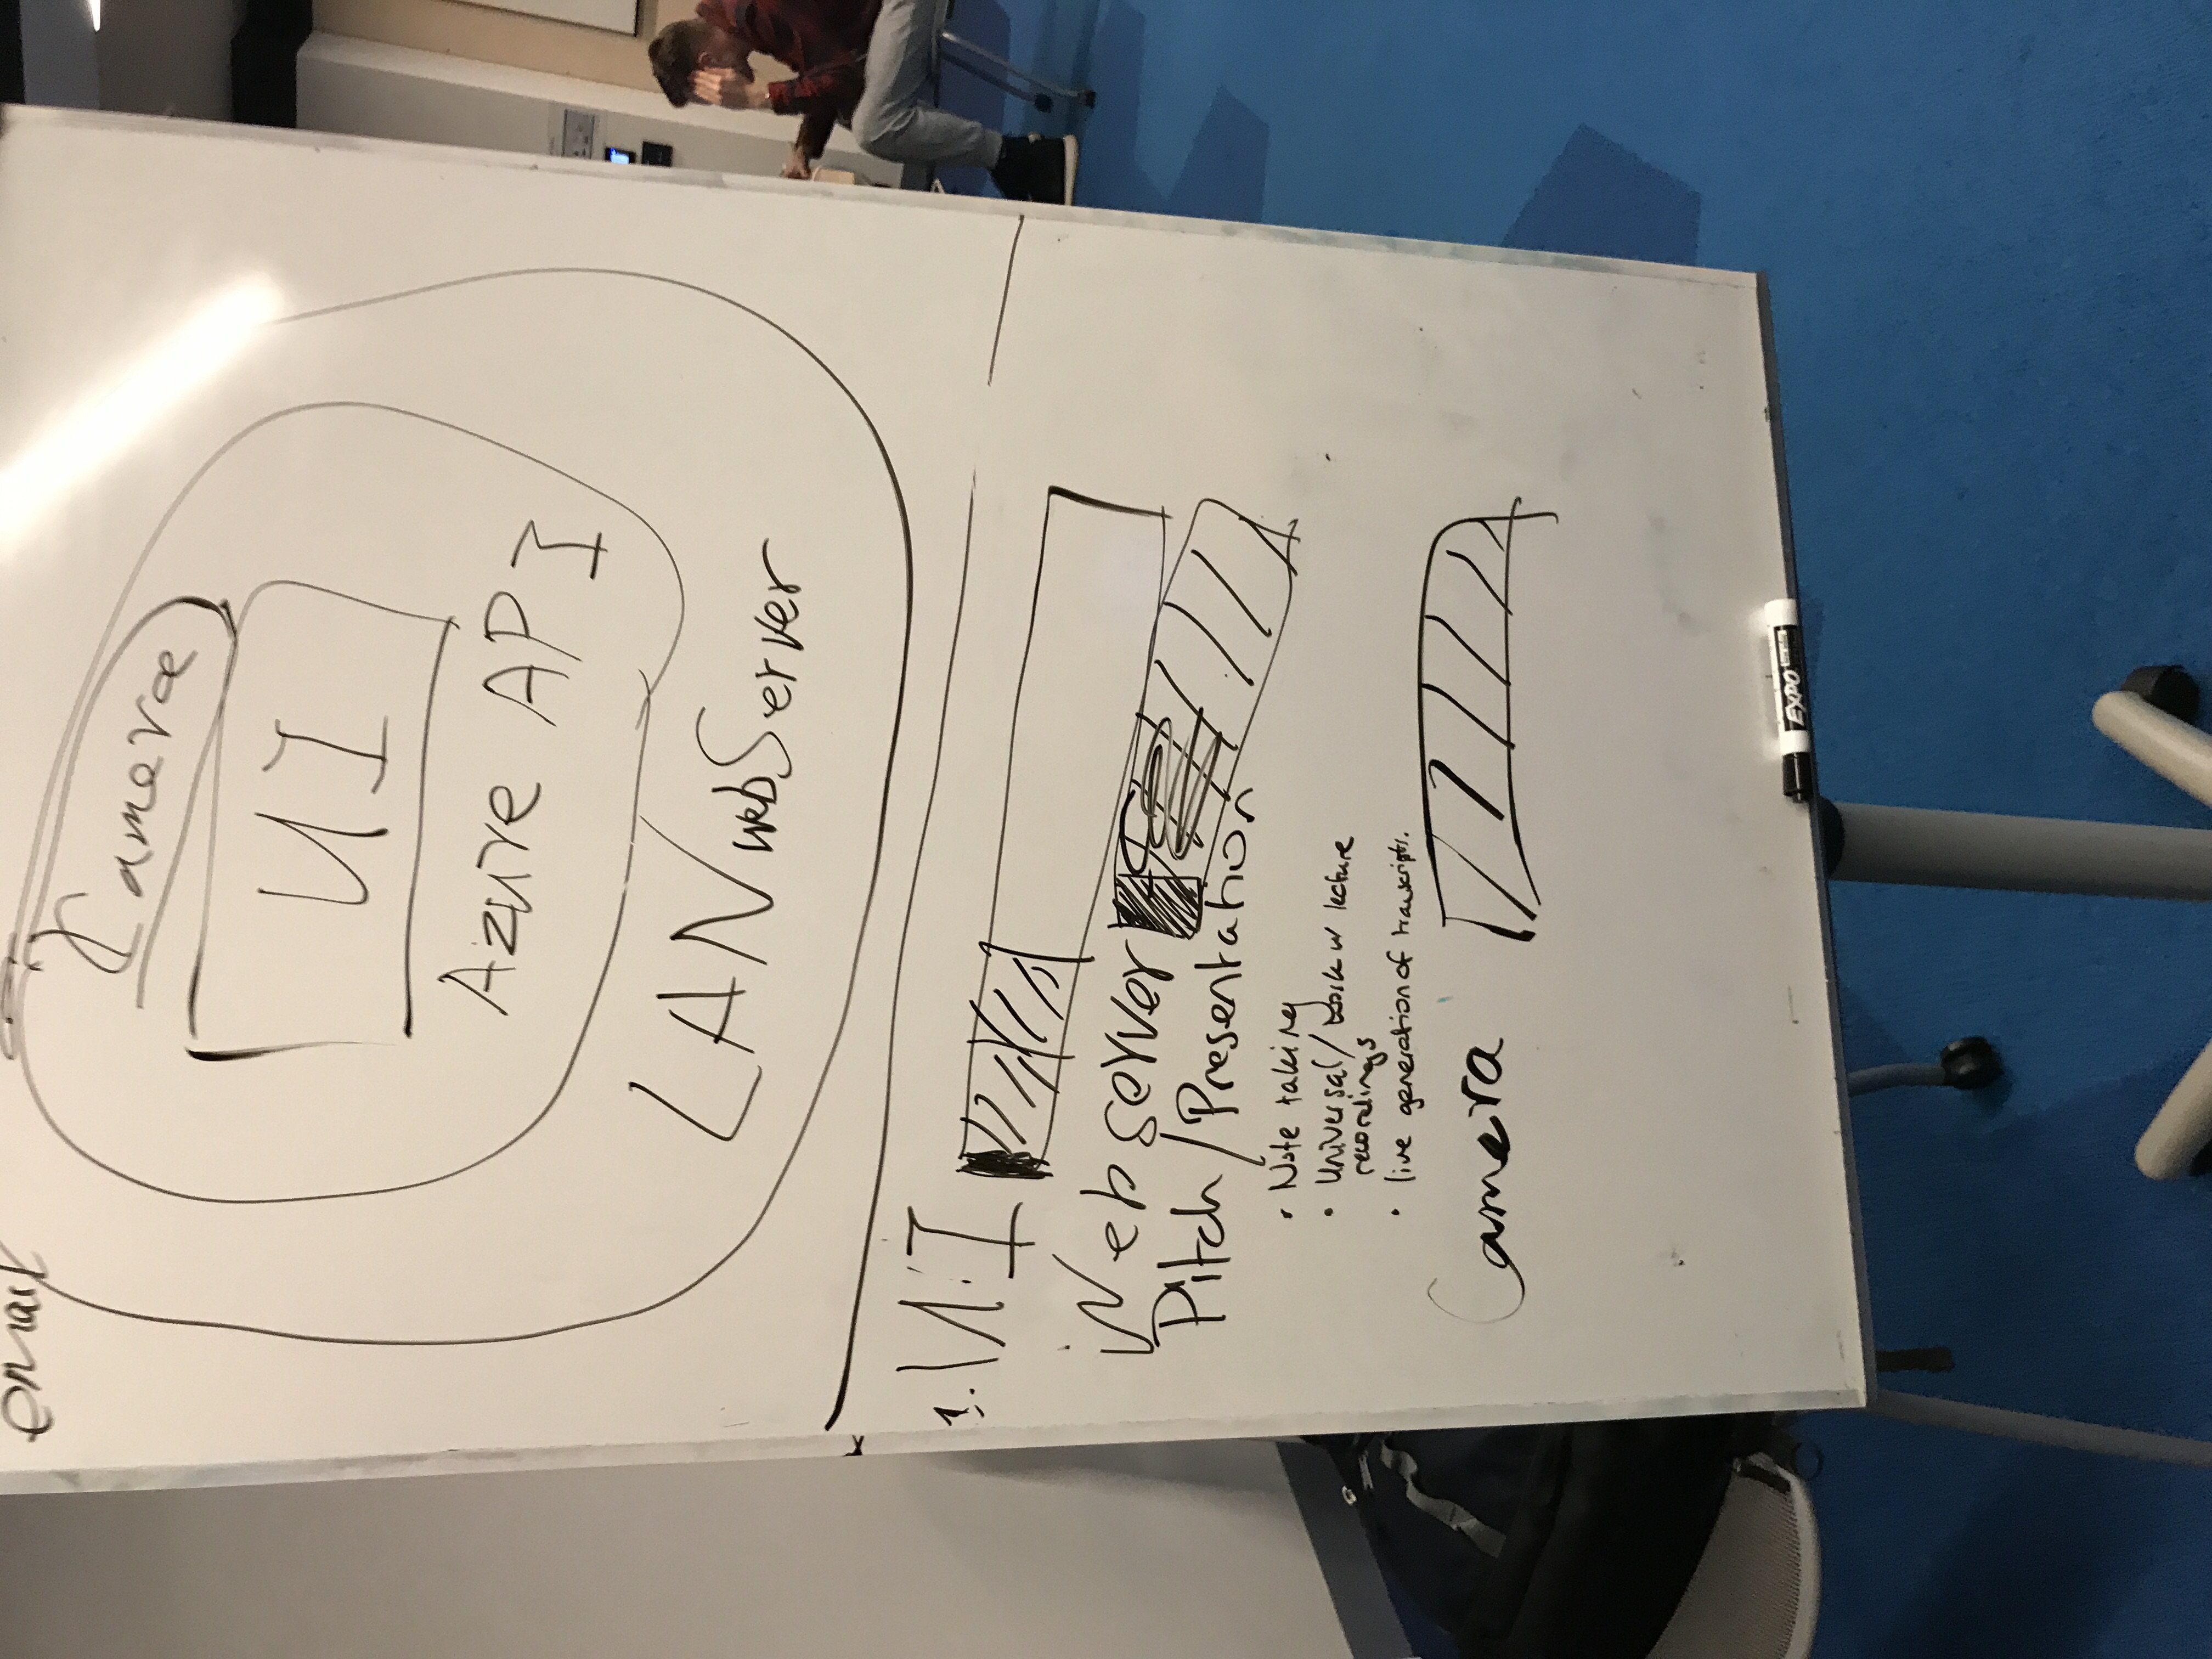 email
Camera
UI
Azure API
LAN webServer
1. UI
Web server
Pitch/Presentation
• Note taking
• Universal/work w lecture
recordings
• live generation of transcripts.
Camera
EXPO